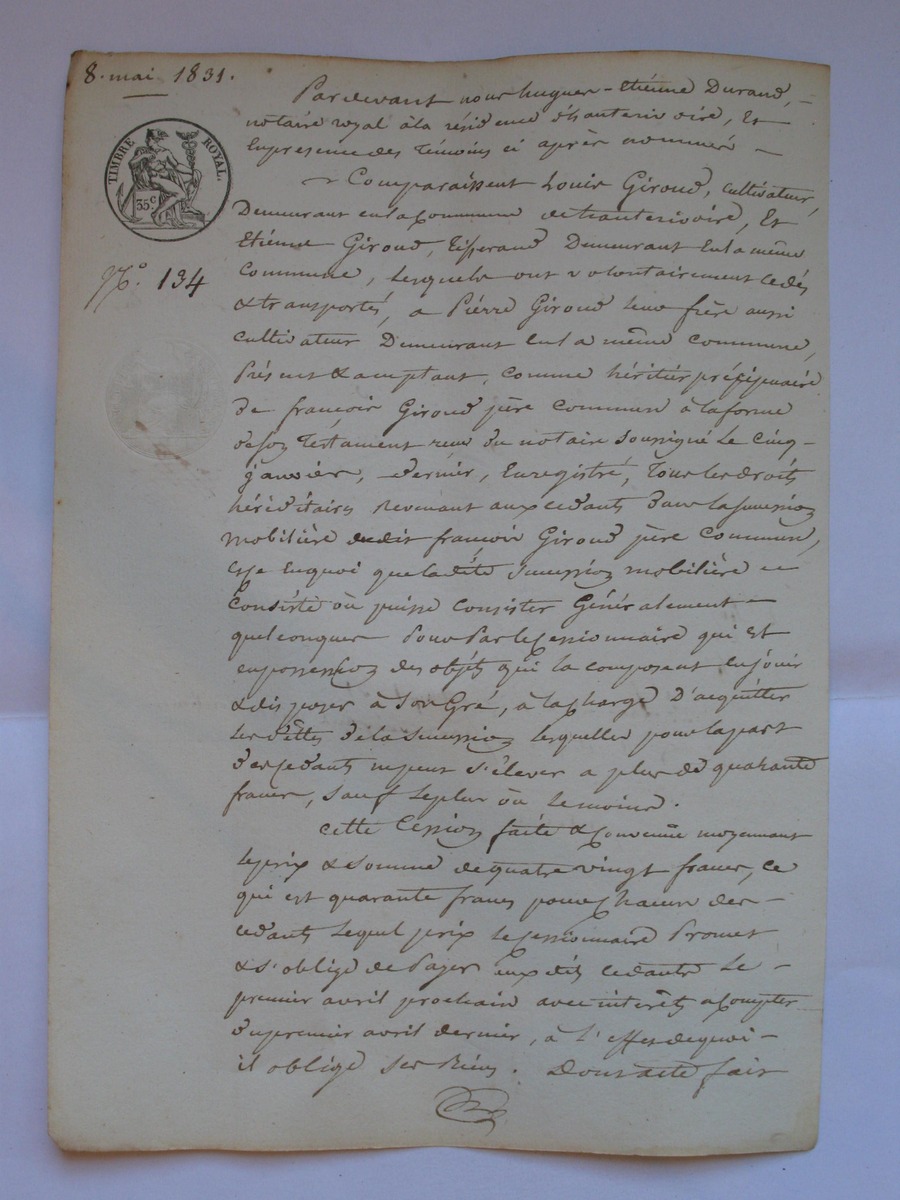 8. mai 1831.
Pardevant nous hugues-Etiénne Durand,
notaire royal à la résidence d'hauterivoire, Et
En présence des Témoins ci après nommés
TIMBRE ROYAL.
35.c
Comparaissent Louis Giroud, cultivateur,
Demeurant en la Commune de hauterivoire, Et
Etiénne Giroud, Tisserand Demeurant En la même
Commune, Lesquels ont volontairement cedés
No. 134
& transportés, a Piérre Giroud leur frère aussi
cultivateur Demeurant En la même commune,
Présent & acceptant, comme héritiér préciputaire
De françois Giroud père commun à la forme
de son Testament recu du notaire soussigné Le Cinq
janviér, dernier, Enregistré, Tous les droits
héréditaires revenant aux cedants Dans la succession
mobilière dudit françois Giroud père Commun,
En quoi que la dite succession mobilière
Consiste où puisse Consister Généralement
quelconques Pour Par le Cessionnaire qui Est
en possession des objéts qui la composent en jouir
& disposer à Son Gré, à la Charge D'acquitter
Les déttes de la succession Lesquelles pour la part
des Cedants ne peut s'élever a plus de quarante
francs, sauf Le plus où Le moins.
Cette Cession faite & Convenue moyennant
Le prix & somme de quatre vingt francs, Ce
qui est quarante francs pour Chacun des
cedants Lequel prix Le Cessionnaire Promet
& s'oblige de Payer aux dits cedants Le
premier avril prochain avec intérèts a Compter
du premier avril dernier, à L'effet de quoi
il oblige Ses Biens. Dont acte fait